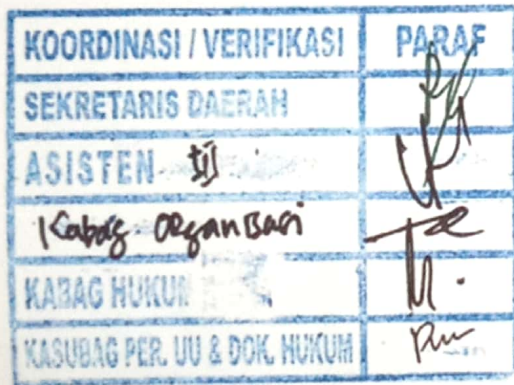 KOORDINASI / VERIFIKASI PARAF
SEKRETARIS DAERAH
ASISTEN III
Kabag. Organisasi
KABAG HUKUM
KASUBAG PER. UU & DOK. HUKUM